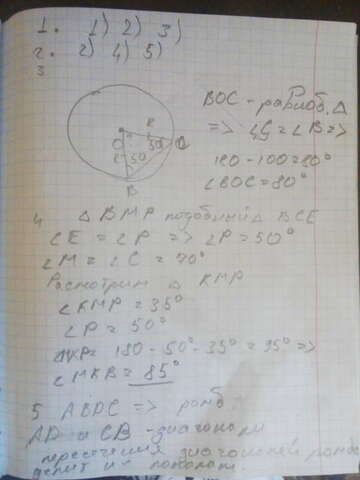 1. 1) 2) 3)
2. 2) 4) 5)
3
O R 50 C
R 50
B
BOC - равноб. Δ
=> ∠C = ∠B =>
180 - 100 = 80°
∠BOC = 80°
4 Δ BMP подобный Δ BCE
∠E = ∠P => ∠P = 50°
∠M = ∠C = 70°
Расмотрим Δ KMP
∠KMP = 35°
∠P = 50°
180 - 50° - 35° = 95° =>
∠MKB = 85°
5 ABDC => ромб
AD и CB - диагонали
пересечения диагоналей ромба
делит их пополам.